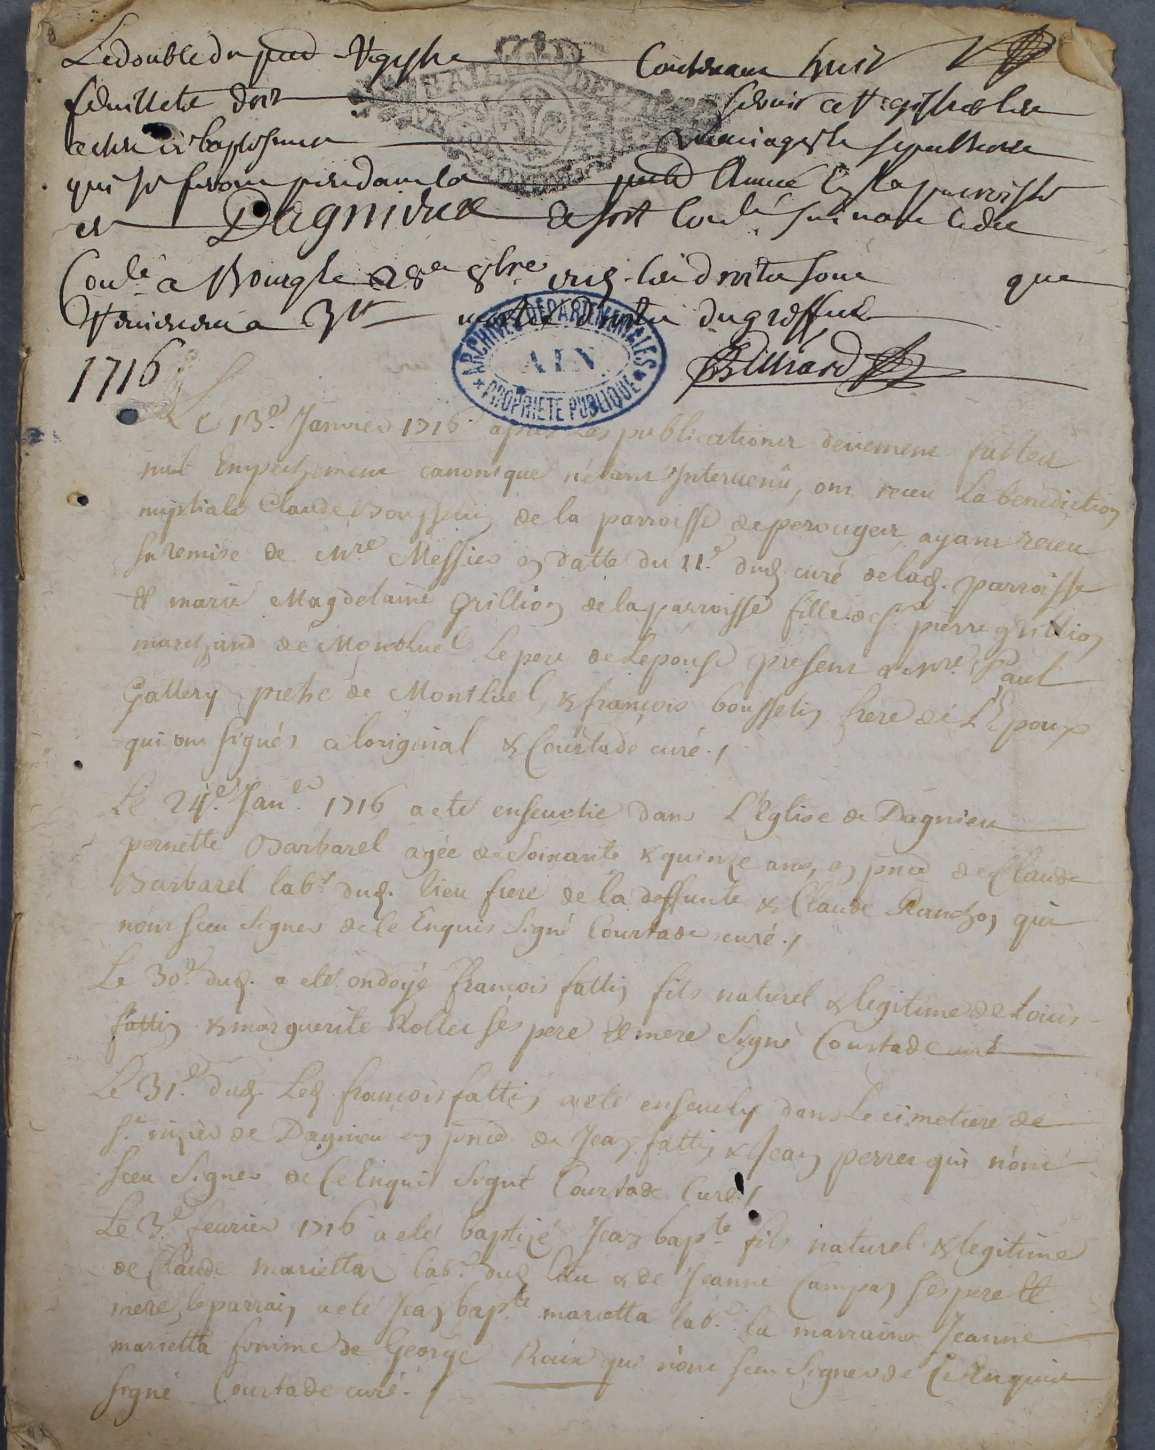 Le double du pnt Registre Contenant huit
feuillets doit servir a Registrer les
actes de baptesmes mariages & sepultures
qui se feront pendant la pnte Année En la parroisse
de Dagnieux
Cotté a Bourg le 28e 8bre
du greffier
1716 Billiard
ARCHIVES DÉPARTEMENTALES
AIN
PROPRIÉTÉ PUBLIQUE
Le 13e Janvier 1716 apres Les publications deuement faittes
nul Empechement canonique n'étant Intervenû, ont receu La benediction
nuptiale Claude Bousselin de la parroisse de perouges, ayant receu
sa remise de Mre Messier en datte du 11e dud. curé de lad. parroisse
& marie Magdelaine Grillion de la parroisse fille de Sr pierre grillion
marchand de Montluel Le pere de Lepouse present & Mre Paul
Gallery pretre de Montluel, & françois bousselin frere de L'Epoux
qui ont signés a loriginal & Courtade curé./
Le 24e Janer 1716 a eté ensevelie dans L'Eglise de Dagnieu
pernette Barbarel agée de Soixante & quinze ans, en pnce de Claude
Barbarel labr dud. lieu frere de la deffunte & Claude Ranchon qui
nont sceu signer de ce Enquis Signé Courtade curé./
Le 30e dud. a eté ondoyé François fattin fils naturel & legitime de Louis
fattin & marguerite Rollet ses pere & mere Signé Courtade curé
Le 31e dud. Led. francois fattin a eté ensevely dans Le cimetiere de
St nizier de Dagnieu en pnce de Jean fattin & Jean perret qui n'ont
sceu Signer de Ce Enquis Signé Courtade Curé./
Le 3e fevrier 1716 a eté baptizé Jean bapte fils naturel & legitime
de Claude marietta labr dud. lieu & de Jeanne Campan ses pere &
mere, le parrain a eté Jean bapte marietta labr la marraine Jeanne
marietta femme de George Roux qui n'ont sceu Signer de Ce Enquis
signé Courtade curé.